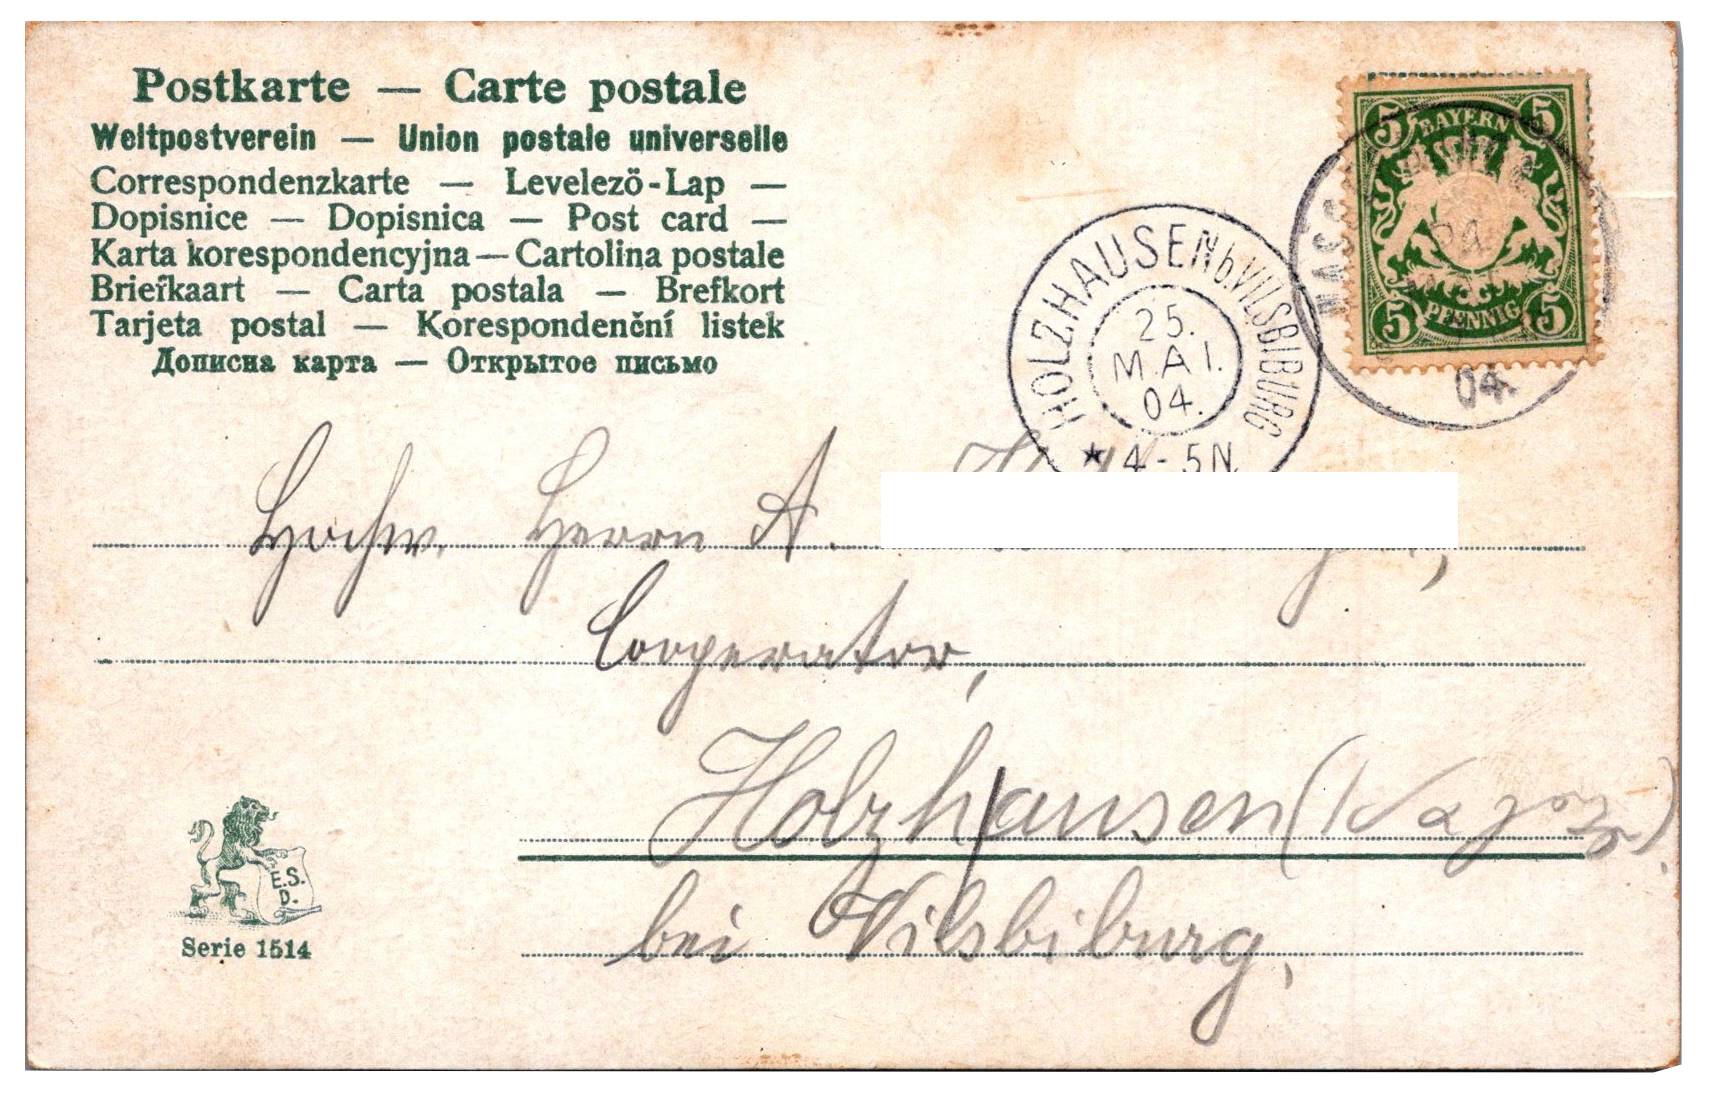 Postkarte — Carte postale
Weltpostverein — Union postale universelle
Correspondenzkarte — Levelezö-Lap —
Dopisnice — Dopisnica — Post card —
Karta korespondencyjna — Cartolina postale
Briefkaart — Carta postala — Brefkort
Tarjeta postal — Korespondenční listek
Дописна карта — Открытое письмо
5 BAYERN 5
5 PFENNIG 5
04.
HOLZHAUSEN b. VILSBIBURG
25.
MAI.
04.
* 4-5N.
Hochw. Herrn A.
Cooperator,
Holzhausen
bei Vilsbiburg,
E.S.
D.
Serie 1514